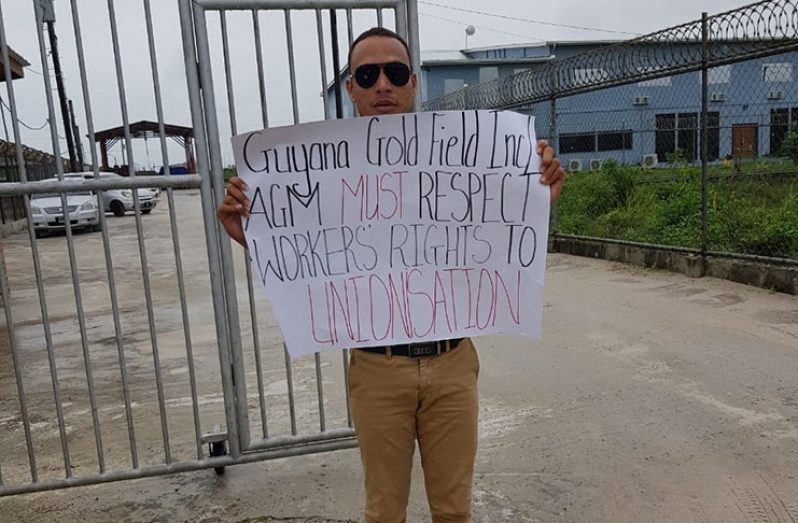 Guyana Gold Field Inc/
AGM MUST RESPECT
WORKERS' RIGHTS TO
UNIONISATION